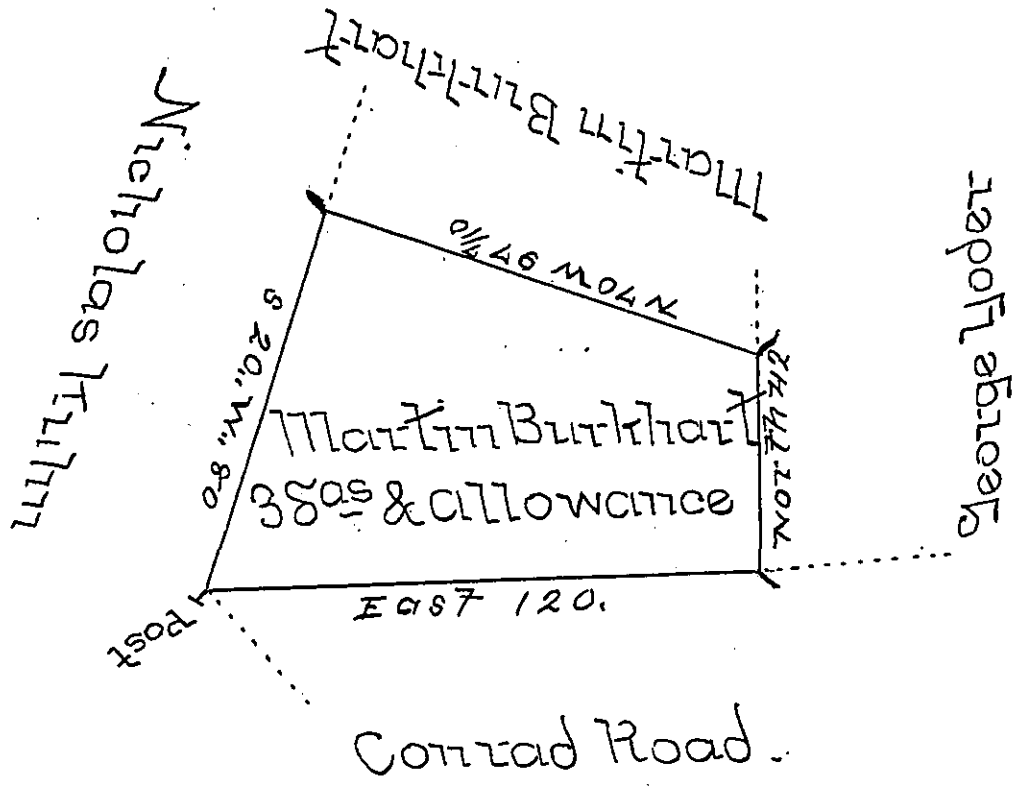 Martin Burkhart
Nicholas
George Yoder
N 70 W 97 7/10
S 20,, W,, 80
North 42
Martin Burkhart
38as & allowance
East 120.
Post
Conrad Road.